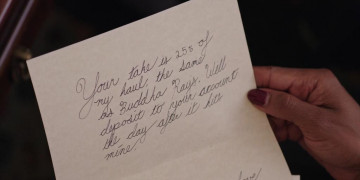 Your take is 25% of
my haul, the same
as Buddha Ray's. Will
deposit to your account
the day after it hits
mine.